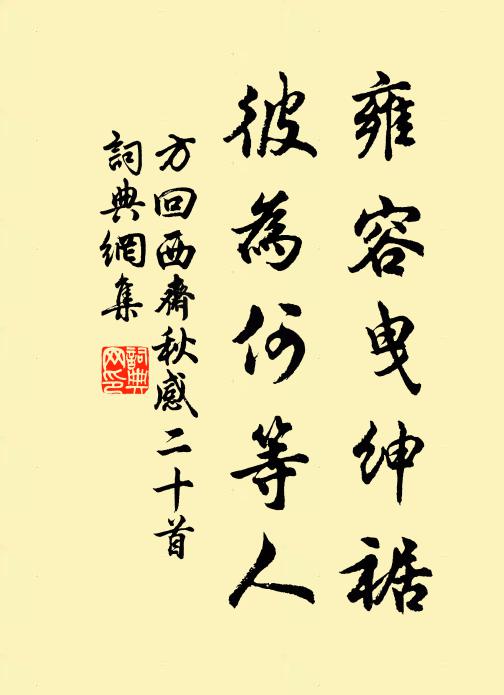 彼為何等人
雍容曳紳裾
方回西齋秋感二十首
詞典網集
詞典網印